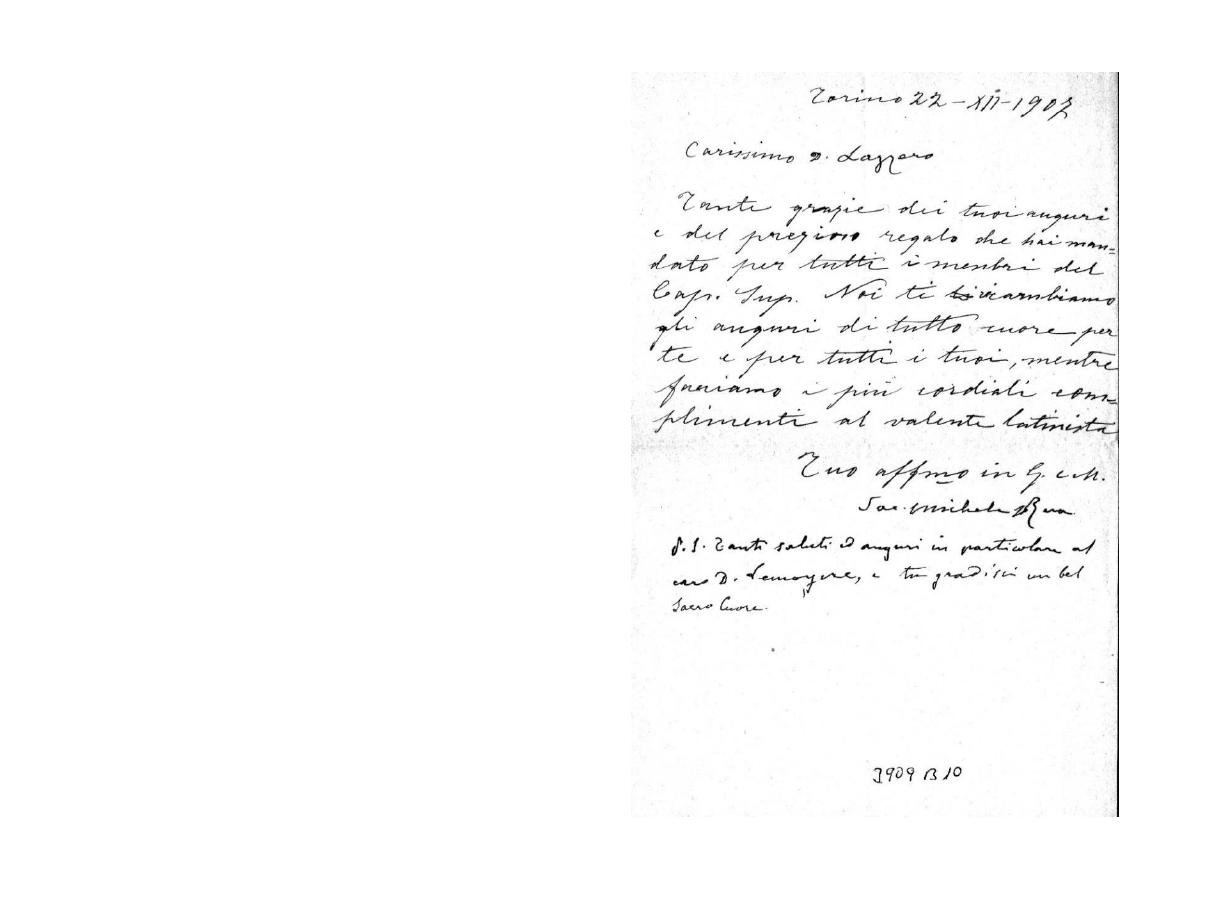 Torino 22-XII-1907
Carissimo D. Lazzero
Tante grazie dei tuoi auguri
e del prezioso regalo che hai man=
dato per tutti i membri del
Cap. Sup. Noi ti ricambiamo
gli auguri di tutto cuore per
te e per tutti i tuoi, mentre
facciamo i più cordiali com=
plimenti al valente latinista
Tuo affmo in G. e M.
Sac. Michele Rua
P.S. Tanti saluti ed auguri in particolare al
caro D. Lemoyne, e tu gradisci un bel
Sacro Cuore.
3909 B 10